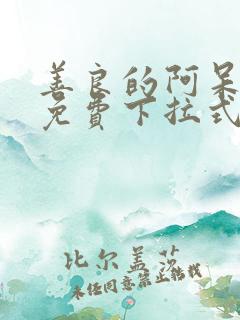 善良的阿呆
免費下拉式
比尔盖茨
未经同意禁止转载